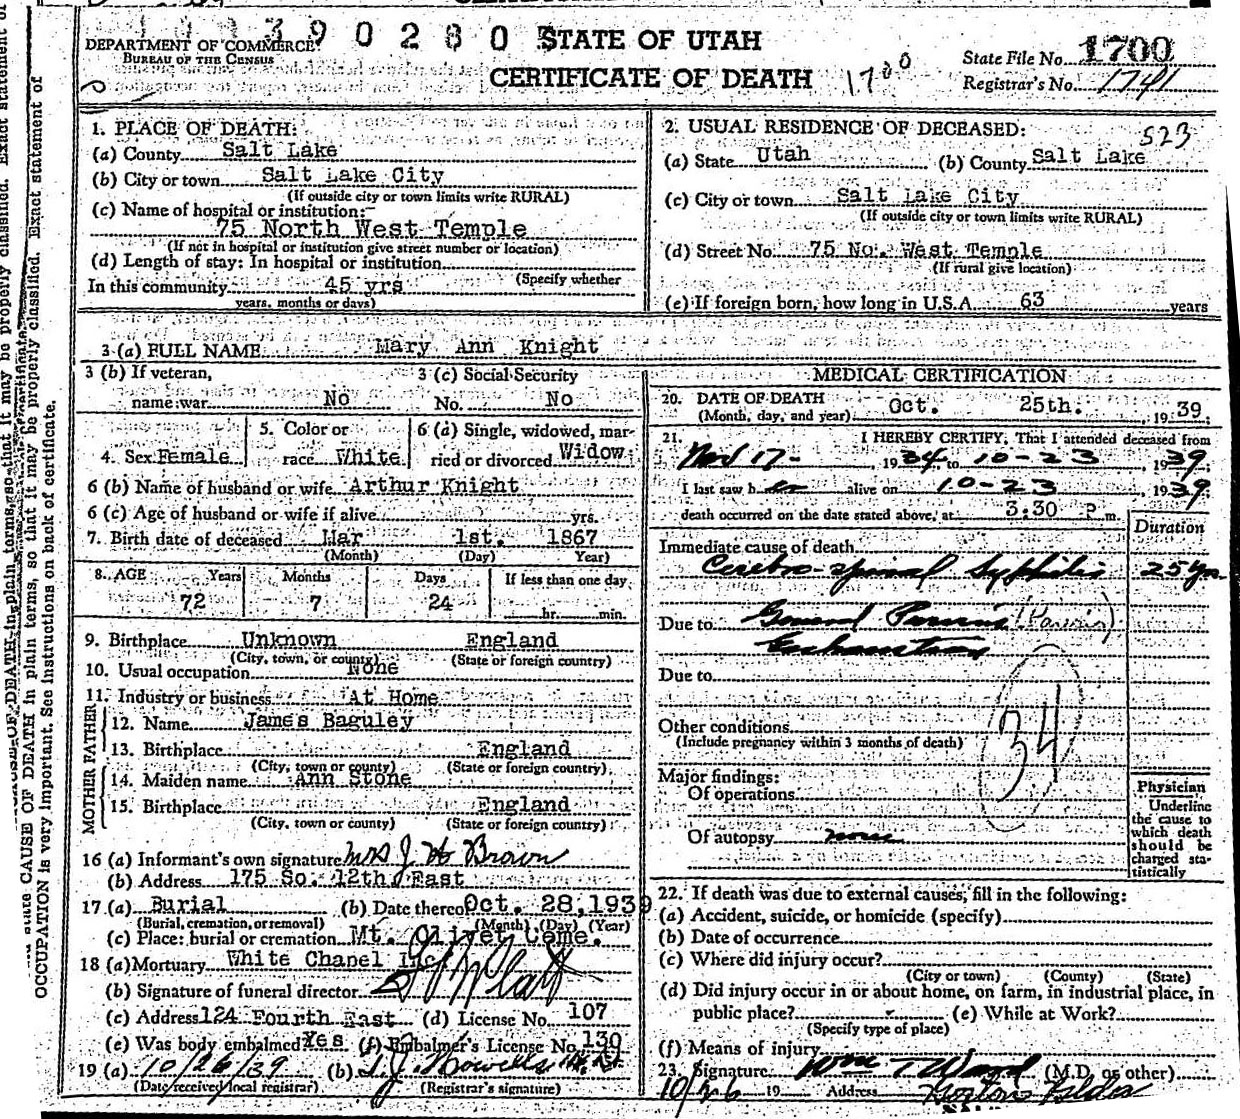 10390280 STATE OF UTAH
DEPARTMENT OF COMMERCE
BUREAU OF THE CENSUS
CERTIFICATE OF DEATH 1700
State File No. 1700
Registrar's No. 1741
1. PLACE OF DEATH:
(a) County Salt Lake
(b) City or town Salt Lake City
(If outside city or town limits write RURAL)
(c) Name of hospital or institution:
75 North West Temple
(If not in hospital or institution give street number or location)
(d) Length of stay: In hospital or institution
(Specify whether
In this community 45 yrs
years, months or days)
2. USUAL RESIDENCE OF DECEASED: 523
(a) State Utah (b) County Salt Lake
(c) City or town Salt Lake City
(If outside city or town limits write RURAL)
(d) Street No. 75 No. West Temple
(If rural give location)
(e) If foreign born, how long in U.S.A. 63 years
3 (a) FULL NAME Mary Ann Knight
3 (b) If veteran, name war No
3 (c) Social Security No. No
4. Sex Female
5. Color or race White
6 (a) Single, widowed, married or divorced Widow
6 (b) Name of husband or wife Arthur Knight
6 (c) Age of husband or wife if alive yrs.
7. Birth date of deceased Mar 1st. 1867
(Month) (Day) Year)
8. AGE Years Months Days If less than one day
72 7 24 hr. min.
9. Birthplace Unknown England
(City, town, or county) (State or foreign country)
10. Usual occupation None
11. Industry or business At Home
FATHER
12. Name James Baguley
13. Birthplace England
(City, town or county) (State or foreign country)
MOTHER
14. Maiden name Ann Stone
15. Birthplace England
(City, town or county) (State or foreign country)
16 (a) Informant's own signature Mrs J H Brown
(b) Address 175 So. 12th East
17 (a) Burial (b) Date thereof Oct. 28, 1939
(Burial, cremation, or removal) (Month) (Day) (Year)
(c) Place: burial or cremation Mt. Olivet Ceme.
18 (a) Mortuary White Chapel Inc
(b) Signature of funeral director
(c) Address 124 Fourth East (d) License No. 107
(e) Was body embalmed Yes (f) Embalmer's License No. 139
19 (a) 10/26/39 (b)
(Date received local registrar) (Registrar's signature)
MEDICAL CERTIFICATION
20. DATE OF DEATH
(Month, day, and year) Oct. 25th. 1939.
21. I HEREBY CERTIFY, That I attended deceased from
Nov 17 - , 1934 to 10-23 , 1939
I last saw her alive on 10-23 , 1939
death occurred on the date stated above, at 3:30 P m.
Duration
Immediate cause of death
Cerebro-spinal Syphilis 25 yrs.
Due to General Paresis (Paresis)
Exhaustion
Due to
34
Other conditions
(Include pregnancy within 3 months of death)
Major findings:
Of operations
Of autopsy none
Physician
Underline
the cause to
which death
should be
charged sta-
tistically
22. If death was due to external causes, fill in the following:
(a) Accident, suicide, or homicide (specify)
(b) Date of occurrence
(c) Where did injury occur?
(City or town) (County) (State)
(d) Did injury occur in or about home, on farm, in industrial place, in
public place? (e) While at Work?
(Specify type of place)
(f) Means of injury
23. Signature Wm T Ward (M.D. or other)
10/26 19 Address
CAUSE OF DEATH in plain terms, so that it may be properly classified. Exact statement of
OCCUPATION is very important. See instructions on back of certificate.